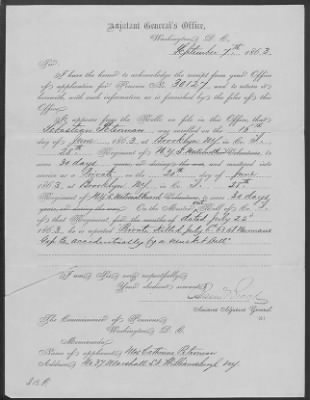 Adjutant General's Office,
Washington, D. C.
September 7th, 1863.
Sir:
I have the honor to acknowledge the receipt from your Office
of application for Pension No. 30127, and to return it
herewith, with such information as is furnished by the files of this
Office.
It appears from the Rolls on file in this Office, that
Sebastian Peterman was enrolled on the 15th
day of June, 1863, at Brooklyn N.Y. in Co.
28th Regiment of N.Y.S. National Guard Volunteers, to
serve 30 days, and mustered into
service as a Private on the 20th day of June,
1863, at Brooklyn N.Y., in Co. 28th
Regiment of N.Y.S. National Guard Volunteers, to serve 30 days,
On the Muster Roll of Co.
of that Regiment, for the months of dated July 22d
1863, he is reported Private Killed July 6th 63 at
Gap Pa accidentally by a musket ball
I am, Sir, very respectfully,
Your obedient servant,
Assistant Adjutant General
The Commissioner of Pensions,
Washington, D. C.
Memoranda:
Name of applicant, Mrs Catherine Peterman
Address, No 37 Marshall St. Williamsburgh N.Y.